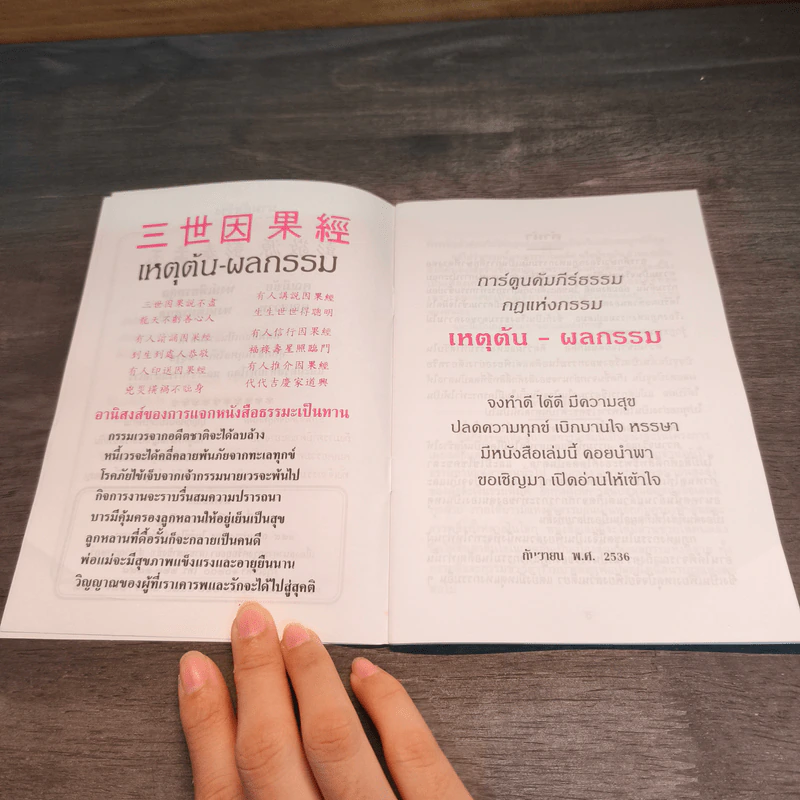 三世因果經
เหตุต้น-ผลกรรม
三世因果說不盡 有人講説因果經
龍天不虧善心人 生生世世得聰明
有人誦因果經 有人信行因果經
到生到處人恭敬 福祿壽星照臨門
有人印送因果經 有人推介因果經
免災橫禍不臨身 代代吉慶家道興
อานิสงส์ของการแจกหนังสือธรรมะเป็นทาน
กรรมเวรจากอดีตชาติจะได้ลบล้าง
หนี้เวรจะได้คลี่คลายพ้นภัยจากทะเลทุกข์
โรคภัยไข้เจ็บจากเจ้ากรรมนายเวรจะพ้นไป
กิจการงานจะราบรื่นสมความปรารถนา
บารมีคุ้มครองลูกหลานให้อยู่เย็นเป็นสุข
ลูกหลานที่ดื้อรั้นก็จะกลายเป็นคนดี
พ่อแม่จะมีสุขภาพแข็งแรงและอายุยืนนาน
วิญญาณของผู้ที่เราเคารพและรักจะได้ไปสู่สุคติ
การ์ตูนคัมภีร์ธรรม
กฎแห่งกรรม
เหตุต้น - ผลกรรม
จงทำดี ได้ดี มีความสุข
ปลดความทุกข์ เบิกบานใจ หรรษา
มีหนังสือเล่มนี้ คอยนำพา
ขอเชิญมา เปิดอ่านให้เข้าใจ
กันยายน พ.ศ. 2536